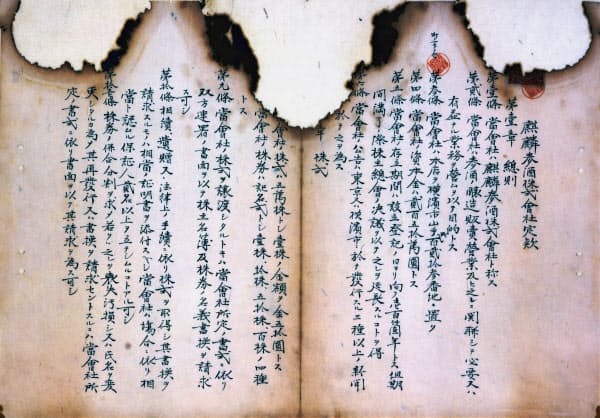 麒麟麥酒株式會社定款
第壹章 總則
第壹條 當會社ハ麒麟麥酒株式會社ト称ス
第貳條 當會社ハ麥酒釀造販賣營業及ヒ之ニ関聯シテ必要又ハ
有益ナル業務ヲ營ムヲ以テ目的トス
第參條 當會社ハ本店ヲ横濱市山手町百貳拾參番地ニ置ク
第四條 當會社ノ資本金ハ貳百五拾萬圓トス
第五條 當會社ノ存立期間ハ設立登記ノ日ヨリ向フ壱百箇年トス但期
間満了ノ際株主總會ノ決議ヲ以テ之ヲ延長スルコトヲ得
當會社ノ公告ハ東京又ハ横濱市ニ於テ發行スル二種以上ノ新聞
ニ於テ之ヲ為ス
株式
會社ノ株式ハ五萬株トシ壹株ノ金額ヲ金五拾圓トス
當會社ノ株券ハ記名式トシ壹株、拾株、五拾株、百株ノ四種
トス
第九條 當會社ノ株式ヲ讓渡シタルトキハ當會社所定ノ書式ニ依リ
双方連署ノ書面ヲ以テ株主名簿及株券ノ名義書換ヲ請求
スヘシ
第拾條 相續、遺贈又ハ法律上ノ手續ニ依リ株式ヲ取得シ其書換ヲ
請求スルモノハ相當ノ証明書ヲ添付スヘシ當會社ハ場合ニ依リ相
當ト認ムル保証人貳名以上ヲ立テシムルコトアルヘシ
株券ノ併合分割ヲ求メ若クハ之ヲ喪失汚損シ又ハ氏名ヲ変
更シタル為メ其再發行又ハ書換ヲ請求セントスルモノハ當會社所
定ノ書式ニ依リ書面ヲ以テ其請求ヲ為スヘシ